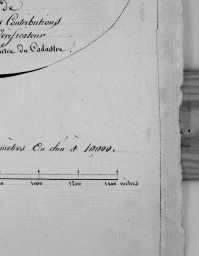 de
Contributions
Vérificateur
du Cadastre.
mètres Ou d'un à 10000.
1000 1500 2000 mètres